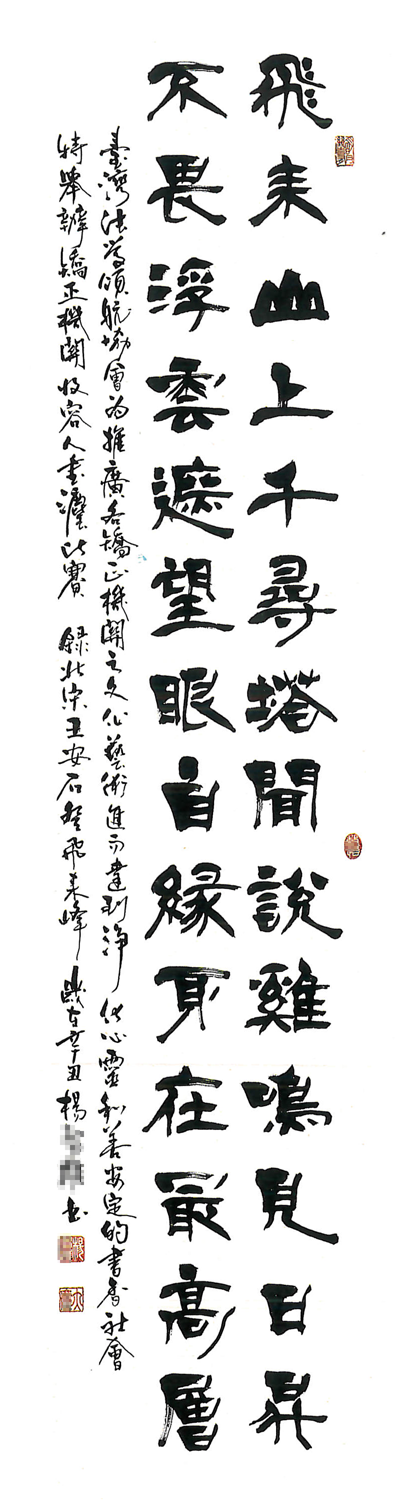 飛来山上千尋塔聞說雞鳴見日昇
不畏浮雲遮望眼自緣身在最高層
臺灣法頌航協會為推廣各矯正機關之文化藝術進而達到淨化心靈和善安定的書香社會
特舉辦矯正機關收容人書灋比賽 錄北宋王安石登飛来峰 歲在辛丑楊 書